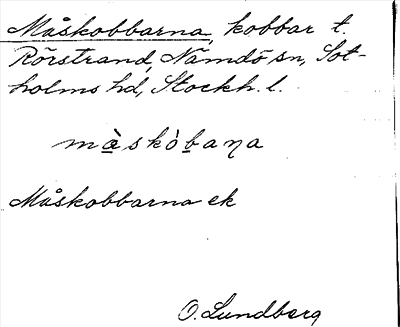 Måskobbarna, kobbar t.
Rörstrand, Nämdö sn, Sot-
holms hd, Stockh. l.
màskòbaƞa
Måskobbarna ek
O. Lundberg